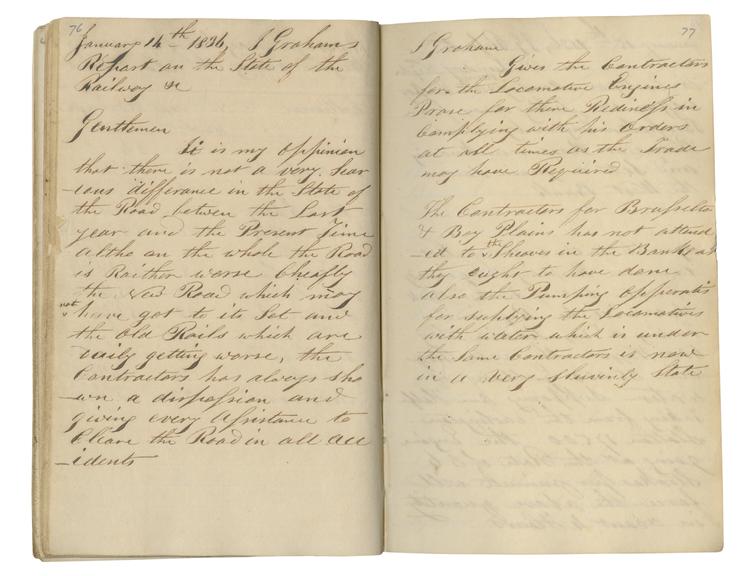 76
January 14th 1836, J Grahams
Report on the State of the
Railway &c
Gentlemen
It is my Oppinion
that there is not a very Sear
-ious differance in the State of
the Road between the Last
year and the Present Time
altho on the whole the Road
is Raither worse Cheafly
the New Road which may
not have got to its Set and
the Old Rails which are
daily getting worse, the
Contractors has always Sho
-wn a disposion and
giving every Asistance to
Cleare the Road in all Acc
-idents
77
J Graham
Gives the Contractors
for the Locomotive Engines
Prase for there Rediness in
Complying with his Orders
at all times as the Trade
may have Required
The Contractors for Brusselto
& Boy Plains has not attend
-id to the Sheaves in the Bank as
they ought to have done
also the Pumping Opperatis
for Suplying the Locomotives
with water which is under
the Same Contractors is now
in a very Sluvinly State